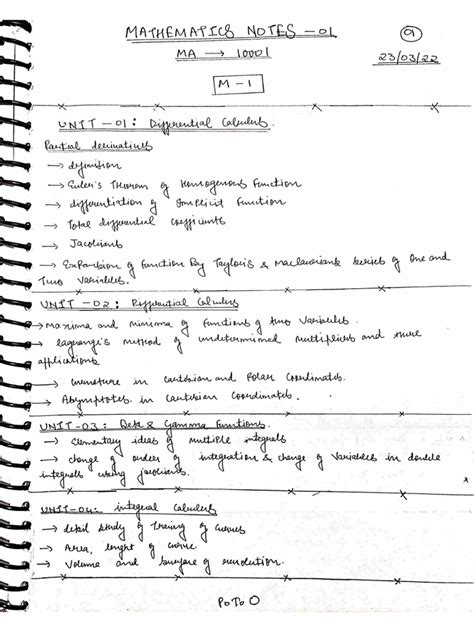 MATHEMATICS NOTES - 01
MA → 10001
23/03/22
M - 1
UNIT - 01 : Differential Calculus.
Partial derivatives
→ definition
→ Euler's Theorem of Homogenous Function
→ differentiation of Implicit Function
→ Total differential coefficients
→ Jacobians
→ Expansion of Function By Taylor's & Maclaurian's Series of One and
Two Variables.
UNIT - 02 : Differential Calculus
→ Maxima and minima of functions of two Variables.
→ lagrange's method of undetermined multipliers and more
applications
→ curvature in cartesian and Polar Coordinates.
→ Asymptotes in Cartesian Coordinates.
UNIT - 03 : Beta & Gamma Functions.
→ elementary ideas of multiple integrals
→ change of orders of integration & change of Variables in double
integrals using jacobians.
UNIT - 04 : integral Calculus
→ detail study of Tracing of Curves
→ Area, lenght of curve
→ Volume and surface of revolution.
P.T.O